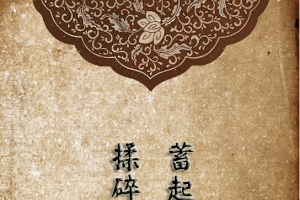 蓄起
揉碎